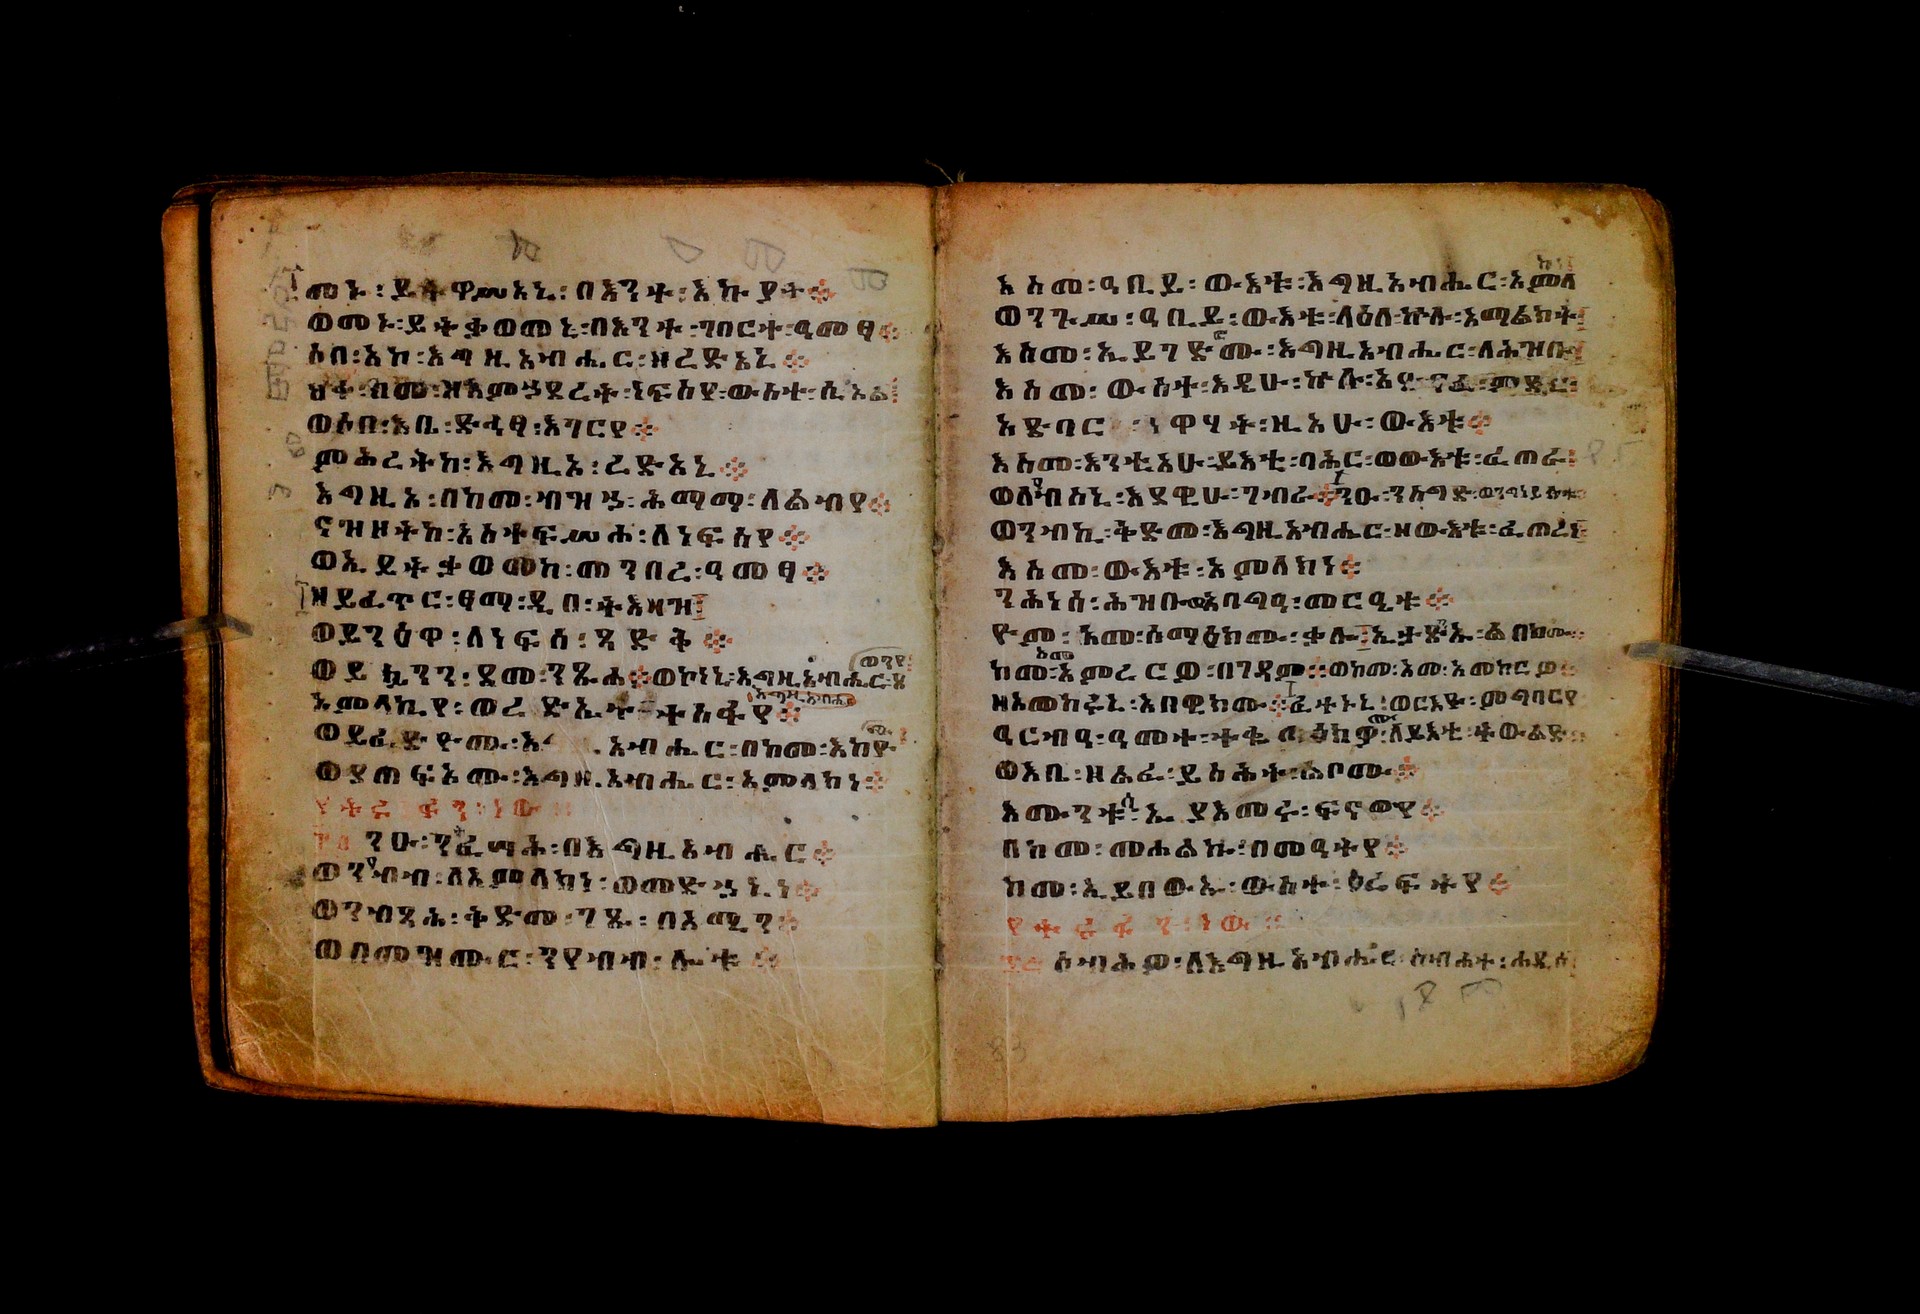 መኑ፡ይትዋሥአኒ፡በእንተ፡እኩያት፨
ወመኑ፡ይትቃወመኒ፡በእንተ፡ገበርተ፡ዓመፃ፨
ሶበ፡አኮ፡እግዚአብሔር፡ዘረድአኒ፨
ሕቀ፡ከመ፡ዘእምኀደረት፡ነፍስየ፡ውስተ፡ሲኦል፤
ወሶበ፡እቤ፡ድኅፃ፡እገርየ፨
ምሕረትከ፡እግዚኦ፡ረድአኒ፨
እግዚኦ፡በከመ፡ብዝኀ፡ሕማማ፡ለልብየ፨
ናዝዞትከ፡አስተፍሥሐ፡ለነፍስየ፨
ወኢይትቃወመከ፡መንበረ፡ዓመፃ፨
ዘይፈጥር፡ፃማ፡ዲበ፡ትእዛዝ፤
ወይንዕዋ፡ለነፍሰ፡ጻድቅ፨
ወይኴንን፡ደመ፡ንጹሐ፨ወኮነኒ፡እግዚአብሔር፡ጸ
ወንየ
አምላኪየ፡ወረድኤተ፡ተስፋየ፨
እግዚአብሔር
ወይፈድዮሙ፡እ አብሔር፡በከመ፡እከዮ
ሙ
ወያጠፍኦሙ፡እግዚአብሔር፡አምላክነ፨
ንዑ፡ንትፈሣሕ፡በእግዚአብሔር፨
ወንየብብ፡ለአምላክነ፡ወመድኀኒነ፨
ወንብጻሕ፡ቅድመ፡ገጹ፡በአሚን፨
ወበመዝሙር፡ንየብብ፡ሎቱ፨
እስመ፡ዓቢይ፡ውእቱ፡እግዚአብሔር፡አምላ
ወንጉሥ፡ዓቢይ፡ውእቱ፡ለዕለ፡ኵሉ፡አማልክት፤
እስመ፡ኢይገድፎሙ፡እግዚአብሔር፡ለሕዝቡ
እስመ፡ውስተ፡እዲሁ፡ኵሉ፡አጽናፈ፡ምድር፡
አድባር ነዋኃት፡ዚአሁ፡ውእቱ፨
እስመ፡እንቲአሁ፡ይእቲ፡ባሕር፡ወውእቱ፡ፈጠራ፤
ወለየብስኒ፡እደዊሁ፡ገብራ፨ንዑ፡ንስግድ፡ወንግነይ፡ሎቱ
ወንብኪ፡ቅድመ፡እግዚአብሔር፡ዘውእቱ፡ፈጠረነ
እስመ፡ውእቱ፡አምላክነ፨
ንሕነሰ፡ሕዝቡ፡ወአባግዓ፡መርዔቱ፨
ዮም፡እመ፡ሰማዕክሙ፡ቃሎ፤ኢታጽንኡ፡ልበክሙ፡
ከመ፡አምረርዎ፡በገዳም፨ወከመ፡አመ፡አመከርዎ፨
አመ
ዘአመከሩኒ፡አበዊክሙ፨ፈተኑኒ፡ወርእዩ፡ምግባርየ
ዓርብዓ፡ዓመተ፡ተቈጣዕክዎ፡ለይእቲ፡ትውልድ፨
ወእቤ፡ዘልፈ፡ይስሕት፡ልቦሙ፨
እሙንቱሂ፡ኢያእመሩ፡ፍናውየ፨
በከመ፡መሐልኩ፡በመዓትየ፨
ከመ፡ኢይበውኡ፡ውስተ፡ዕረፍትየ፨
ሰብሕዎ፡ለእግዚአብሔር፡ስብሐተ፡ሐዲሰ፤